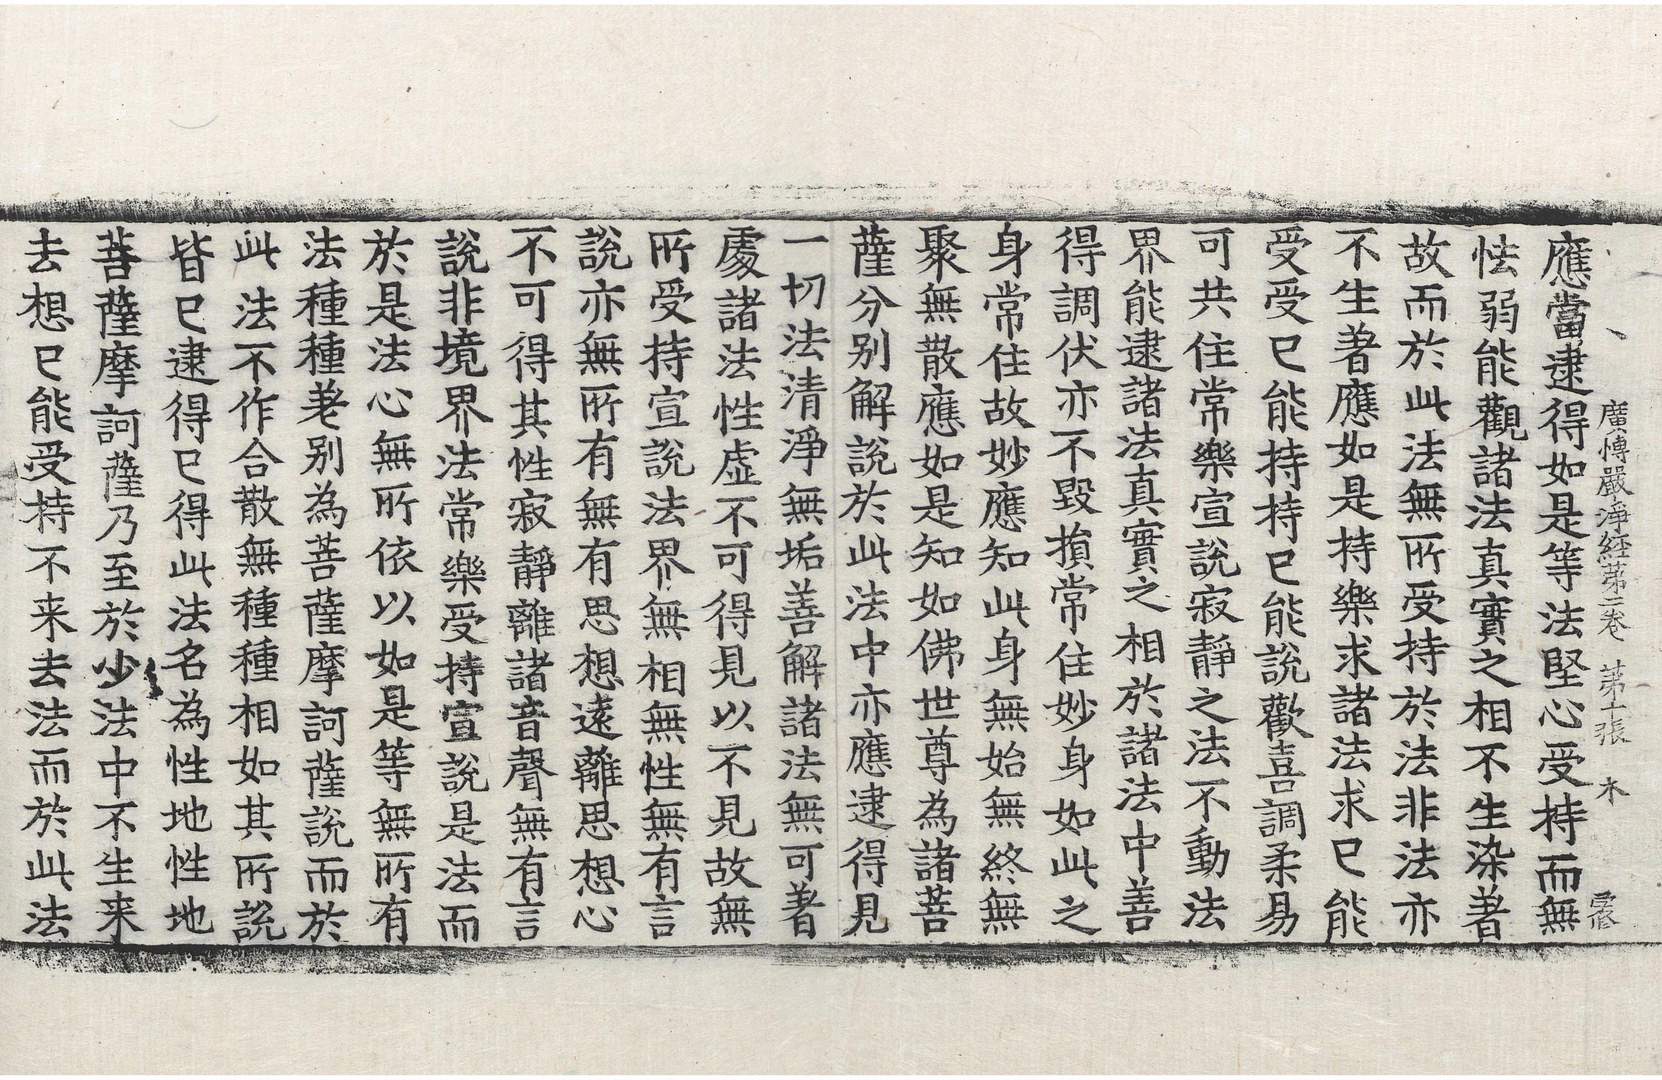 廣博嚴淨経苐二卷　苐十張　木
應當逮得如是等法堅心受持而無
怯弱能觀諸法真實之相不生染著
故而於此法無所受持於法非法亦
不生著應如是持樂求諸法求已能
受受已能持持已能說歡喜調柔易
可共住常樂宣說寂靜之法不動法
界能逮諸法真實之相於諸法中善
得調伏亦不毀損常住妙身如此之
身常住故妙應知此身無始無終無
聚無散應如是知如佛世尊為諸菩
薩分別解說於此法中亦應逮得見
一切法清淨無垢善解諸法無可著
處諸法性虛不可得見以不見故無
所受持宣說法界無相無性無有言
說亦無所有無有思想遠離思想心
不可得其性寂靜離諸音聲無有言
說非境界法常樂受持宣說是法而
於是法心無所依以如是等無所有
法種種差別為菩薩摩訶薩說而於
此法不作合散無種種相如其所說
皆已逮得已得此法名為性地性地
菩薩摩訶薩乃至於少法中不生来
去想已能受持不来去法而於此法